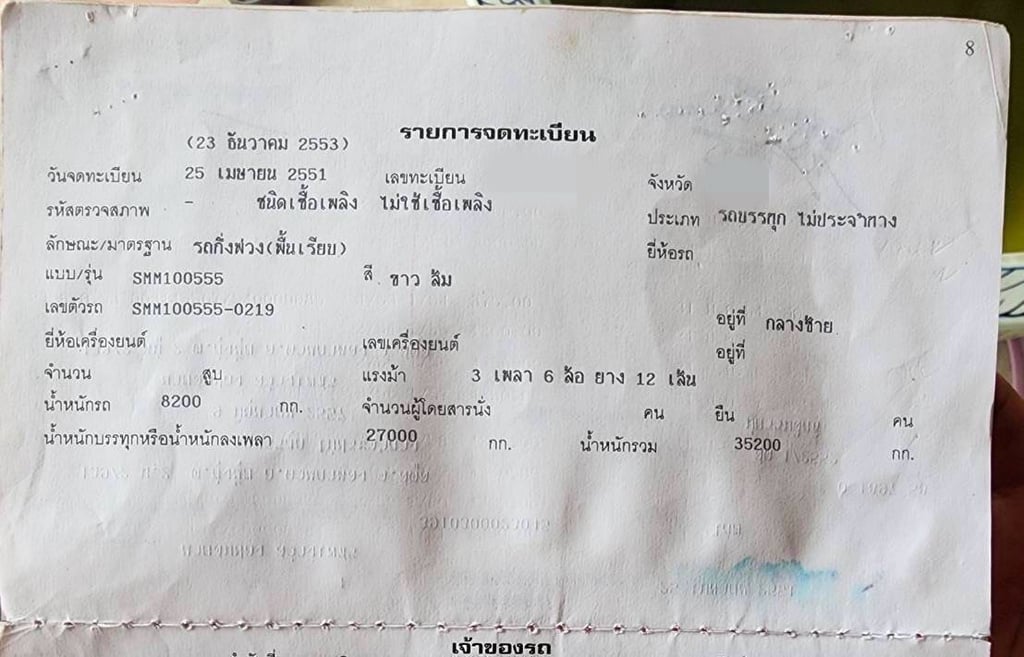 8
รายการจดทะเบียน
(23 ธันวาคม 2553)
วันจดทะเบียน 25 เมษายน 2551 เลขทะเบียน จังหวัด
รหัสตรวจสภาพ - ชนิดเชื้อเพลิง ไม่ใช้เชื้อเพลิง ประเภท รถบรรทุก ไม่ประจำทาง
ลักษณะ/มาตรฐาน รถกึ่งพ่วง(พื้นเรียบ) ยี่ห้อรถ
แบบ/รุ่น SMM100555 สี ขาว ส้ม
เลขตัวรถ SMM100555-0219 อยู่ที่ กลางซ้าย
ยี่ห้อเครื่องยนต์ เลขเครื่องยนต์ อยู่ที่
จำนวน สูบ แรงม้า 3 เพลา 6 ล้อ ยาง 12 เส้น
น้ำหนักรถ 8200 กก. จำนวนผู้โดยสารนั่ง คน ยืน คน
น้ำหนักบรรทุกหรือน้ำหนักลงเพลา 27000 กก. น้ำหนักรวม 35200 กก.
เจ้าของรถ